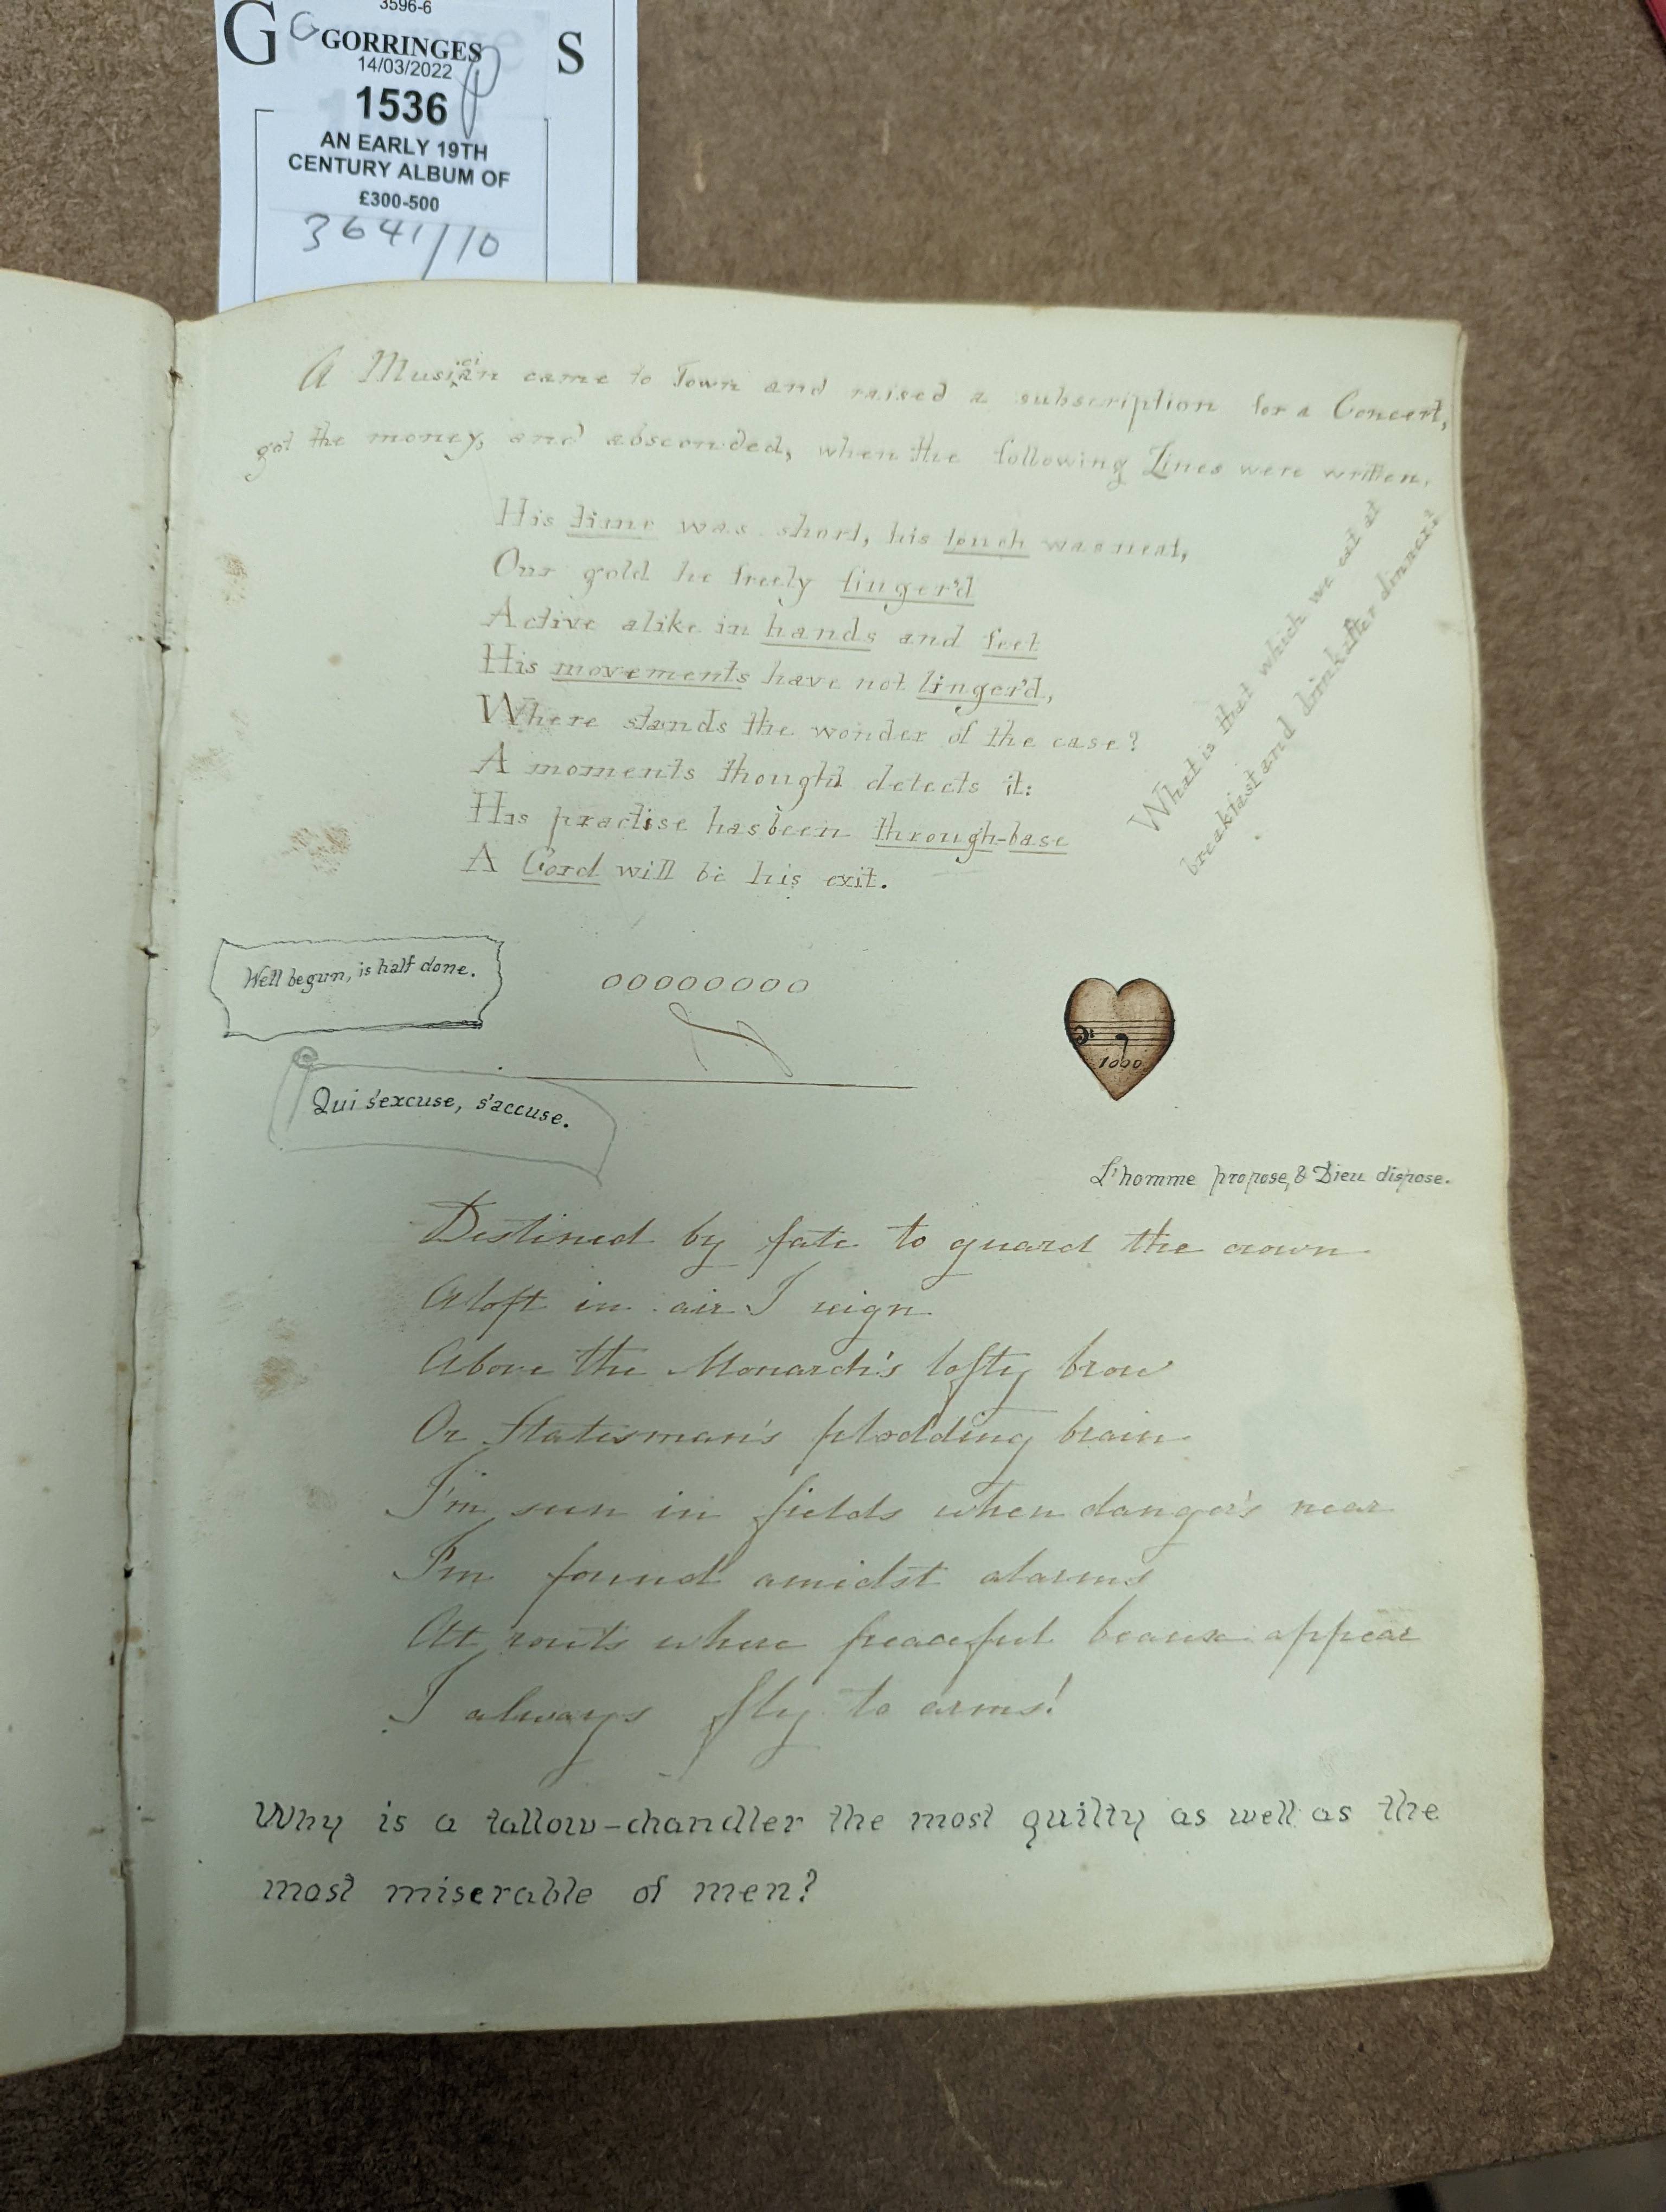 3596-6
G GORRINGES S
14/03/2022
1536
AN EARLY 19TH
CENTURY ALBUM OF
£300-500
3641/10
A Musician came to Town and raised a subscription for a Concert,
got the money, and absconded, when the following Lines were written.
His time was short, his touch was neat,
Our gold he freely finger'd
Active alike in hands and feet
His movements have not linger'd,
Where stands the wonder of the case?
A moments thought detects it:
His practise has been through-base
A Cord will be his exit.
What is that which we eat at
breakfast and drink after dinner?
Well begun, is half done.
00000000
1000
Qui s'excuse, s'accuse.
L'homme propose, & Dieu dispose.
Destined by fate to guard the crown
Aloft in air I reign
Above the Monarch's lofty brow
Or Statesman's plodding brain
I'm seen in fields when danger's near
I'm found amidst alarms
At routs where peaceful beaux appear
I always fly to arms!
Why is a tallow-chandler the most guilty as well as the
most miserable of men?